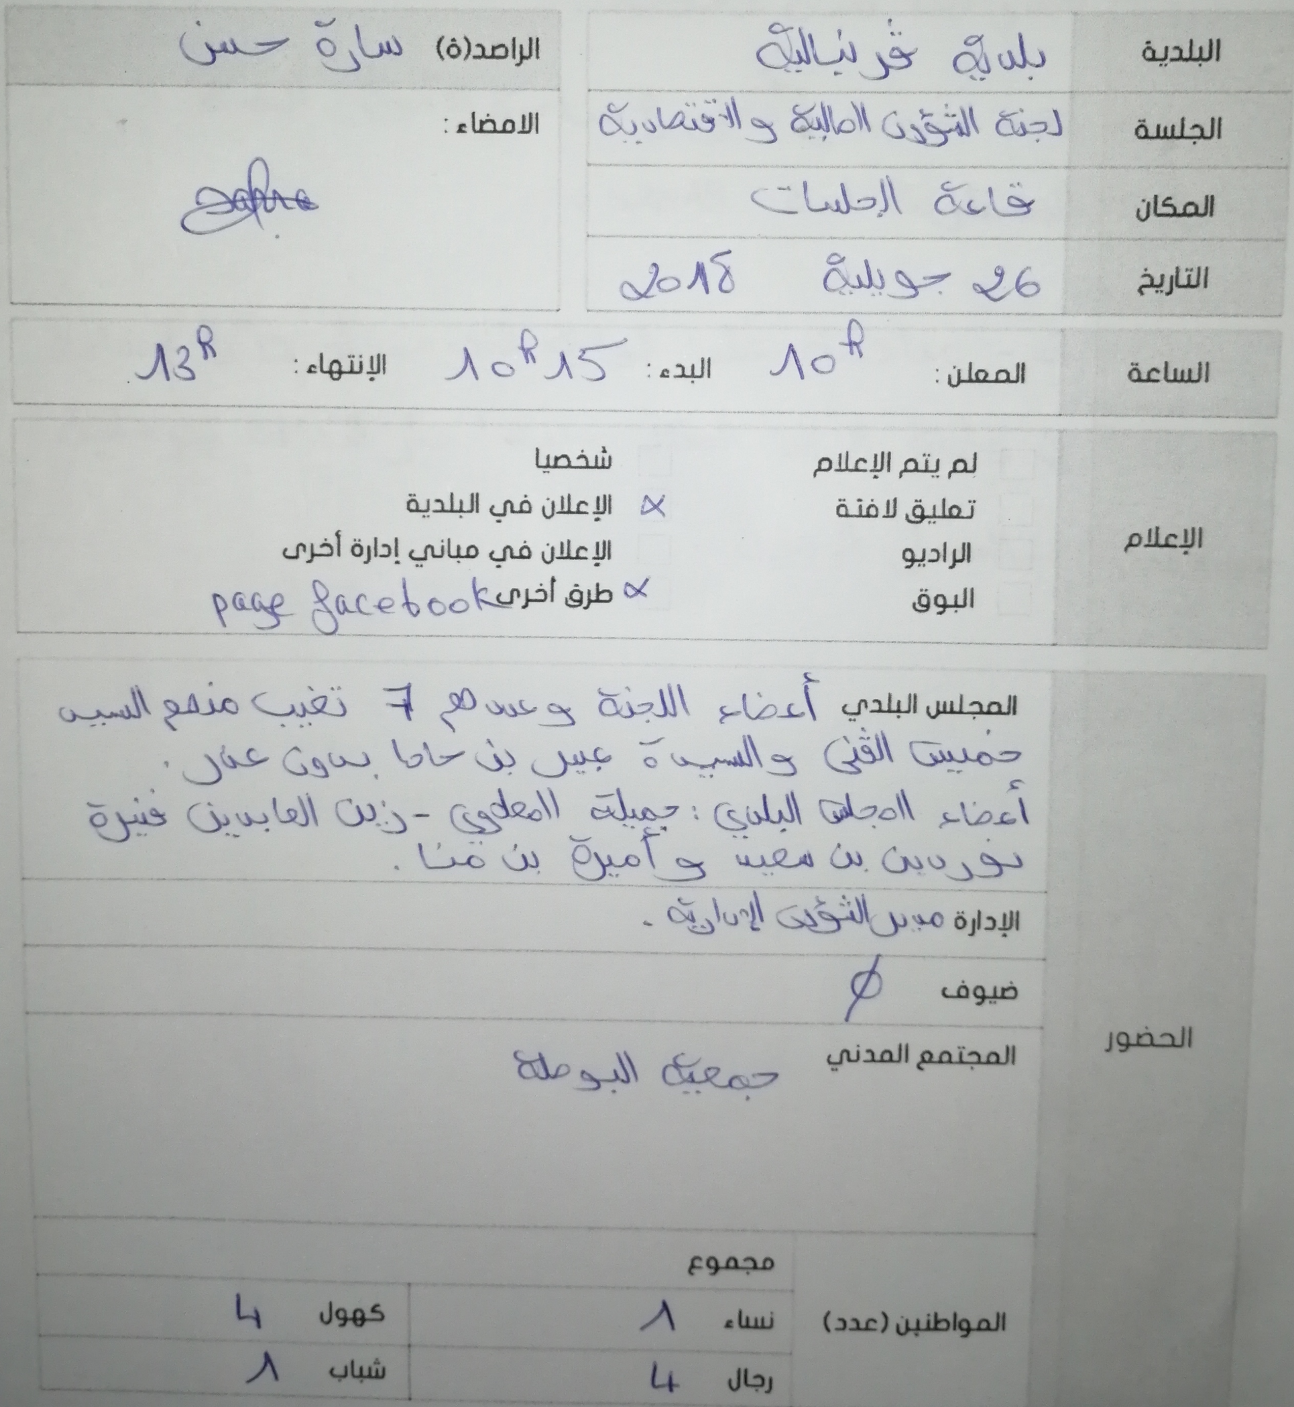 البلدية بلدية ڨرنبالية
الراصد(ة) سارة حسن
الجلسة لجنة الشؤون المالية والاقتصادية
الامضاء :
المكان قاعة الجلسات
التاريخ 26 جويلية 2018
الساعة المعلن : 10h البدء : 10h15 الإنتهاء : 13h
الإعلام
لم يتم الإعلام شخصيا
تعليق لافتة x الإعلان في البلدية
الراديو الإعلان في مباني إدارة أخرى
البوق x طرق أخرى page facebook
الحضور
المجلس البلدي أعضاء اللجنة وعددهم 7 تغيب منهم السيد
خميس الڨني والسيدة عبير بن حادا بدون عذر.
أعضاء المجلس البلدي : جميلة - زين العابدين
نور دين بن سعيد وأميرة بن .
الإدارة مدير الشؤون الإدارية .
ضيوف Ø
المجتمع المدني جمعية البوصلة
المواطنين (عدد)
مجموع
نساء 1 كهول 4
رجال 4 شباب 1